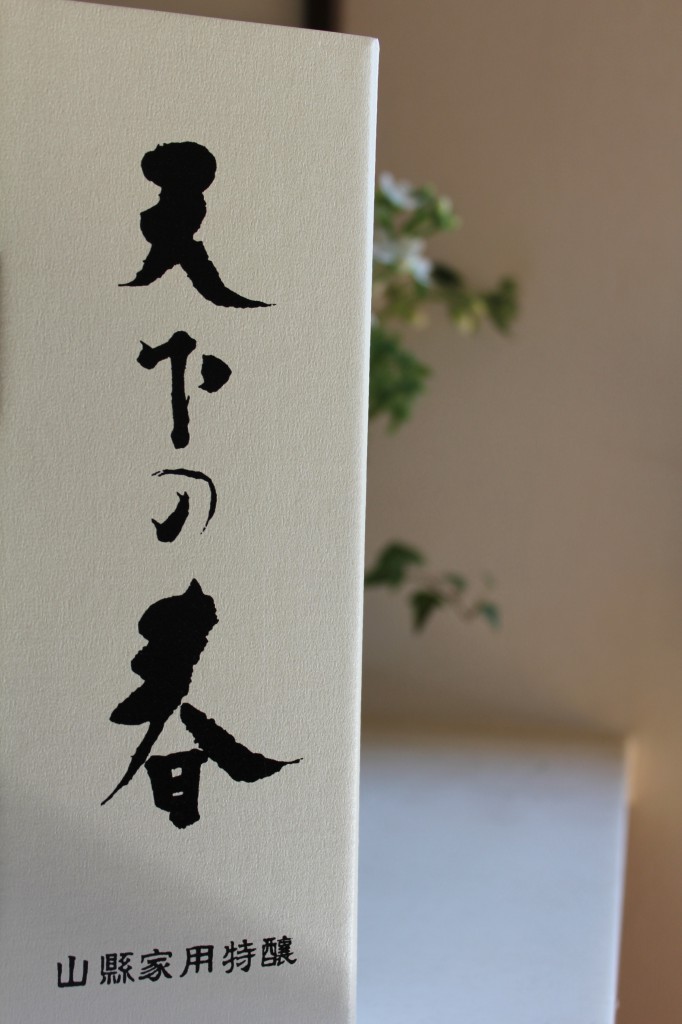 天下の春
山縣家用特醸